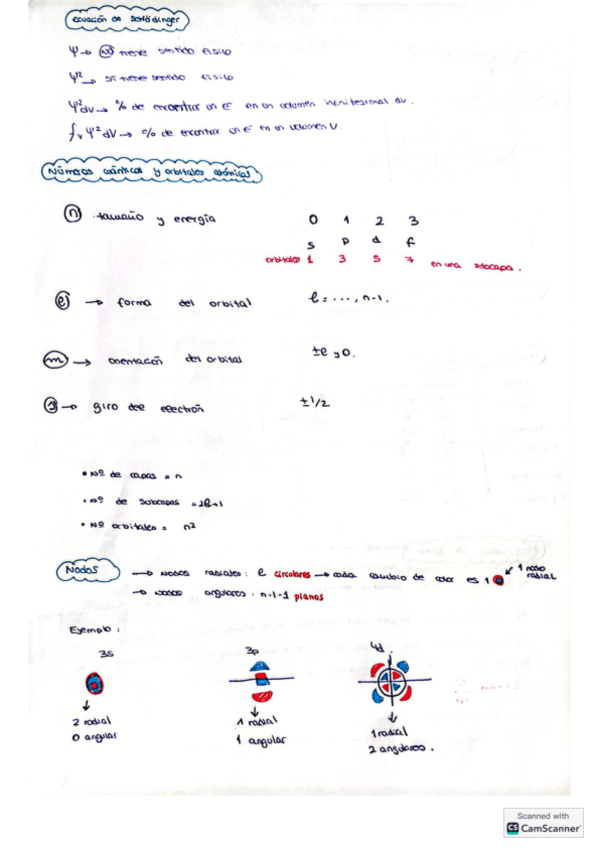 ecuación de Schrödinger
Ψ → NO tiene sentido físico
Ψ² → sí tiene sentido físico
Ψ²dv → % de encontrar un e⁻ en un volumen infinitesimal dv.
∫v Ψ² dV → % de encontrar un e⁻ en un volumen V.
Números cuánticos y orbitales atómicos
n tamaño y energía 0 1 2 3
s p d f
orbitales 1 3 5 7 en una subcapa.
l → forma del orbital l = ..., n-1.
m → orientación del orbital ±l y 0.
s → giro del electrón ±1/2
• Nº de capas = n
• Nº de subcapas = 2l+1
• Nº orbitales = n²
Nodos → nodos radiales: l circulares → cada cambio de color es 1 1 nodo radial
→ nodos angulares: n-l-1 planos
Ejemplo:
3s 3p 4d
2 radial 1 radial 1 radial
0 angular 1 angular 2 angulares.
Scanned with
CS CamScanner